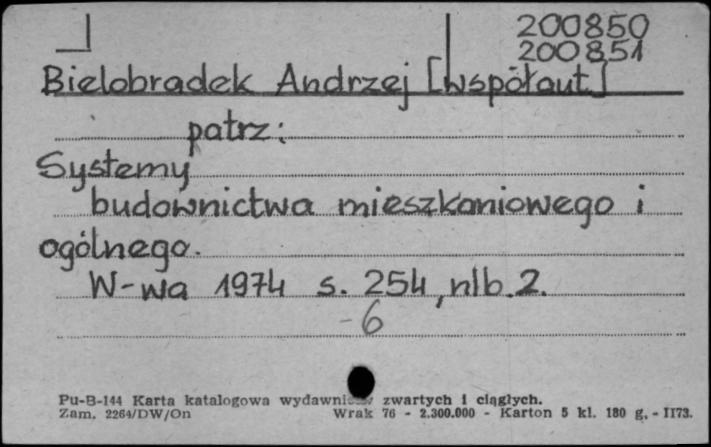 200850
200851
Bielobradek Andrzej [współaut]
patrz:
Systemy
budownictwa mieszkaniowego i
ogólnego.
W-wa 1974 s. 254, nlb. 2.
-6
Pu-B-144 Karta katalogowa zwartych i ciągłych.
Zam. 2264/DW/On Wrak 76 - 2.300.000 - Karton 5 kl. 180 g. - II73.